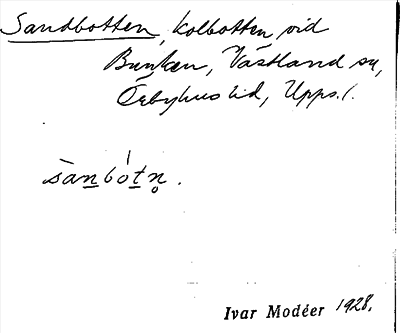 Sandbotten, kolbotten, vid
Bunken, Västland sn,
Örbyhus hd, Upps. l.
sànbótn̥.
Ivar Modéer 1928.